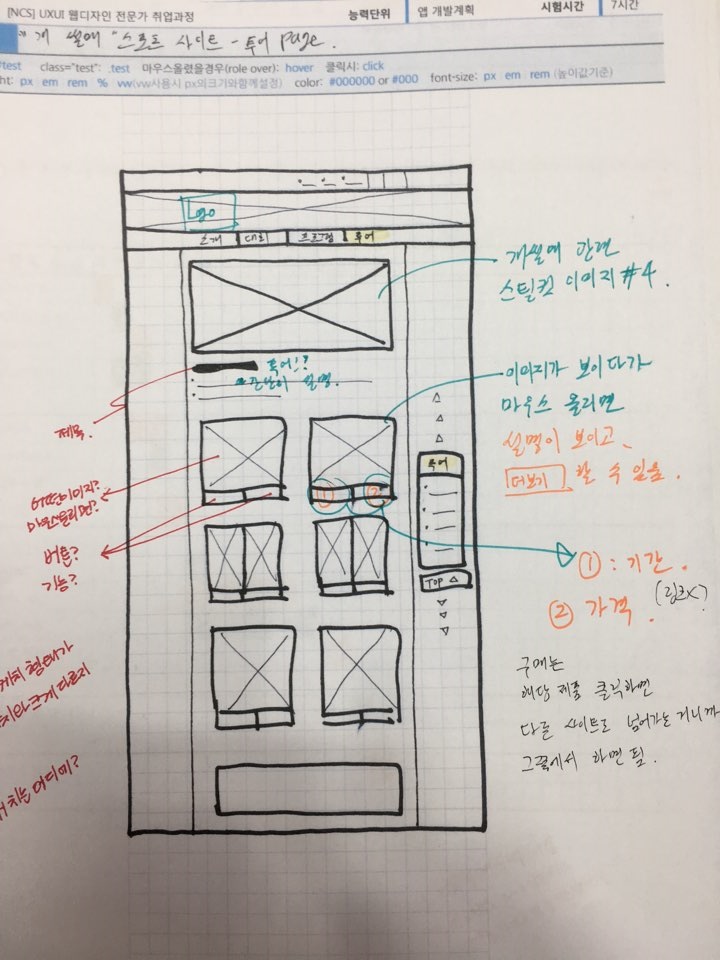 [NCS] UXUI 웹디자인 전문가 취업과정
능력단위
앱 개발계획
시험시간
7시간
개 썰매 "스포츠 사이트 - 투어 page.
#test class="test": .test 마우스올렸을경우(role over): hover 클릭시: click
ht: px em rem % vw(vw사용시 px의크기와함께설정) color: #000000 or #000 font-size: px em rem (높이값기준)
Logo
소개 대회 프로그램 투어
개썰매 관련
스틸컷 이미지 #4.
투어!?
간단히 설명.
제목.
이미지가 보이다가
마우스 올리면
설명이 보이고,
더보기 할 수 있음.
어떤이미지?
마우스올리면?
버튼?
기능?
① ②
투어
TOP △
① : 기간.
② 가격.
(링크X?
구매는
해당 제품 클릭하면
다른 사이트로 넘어가는 거니까
그쪽에서 하면 됨.
형태가
크게 다르지
치는 어디에?